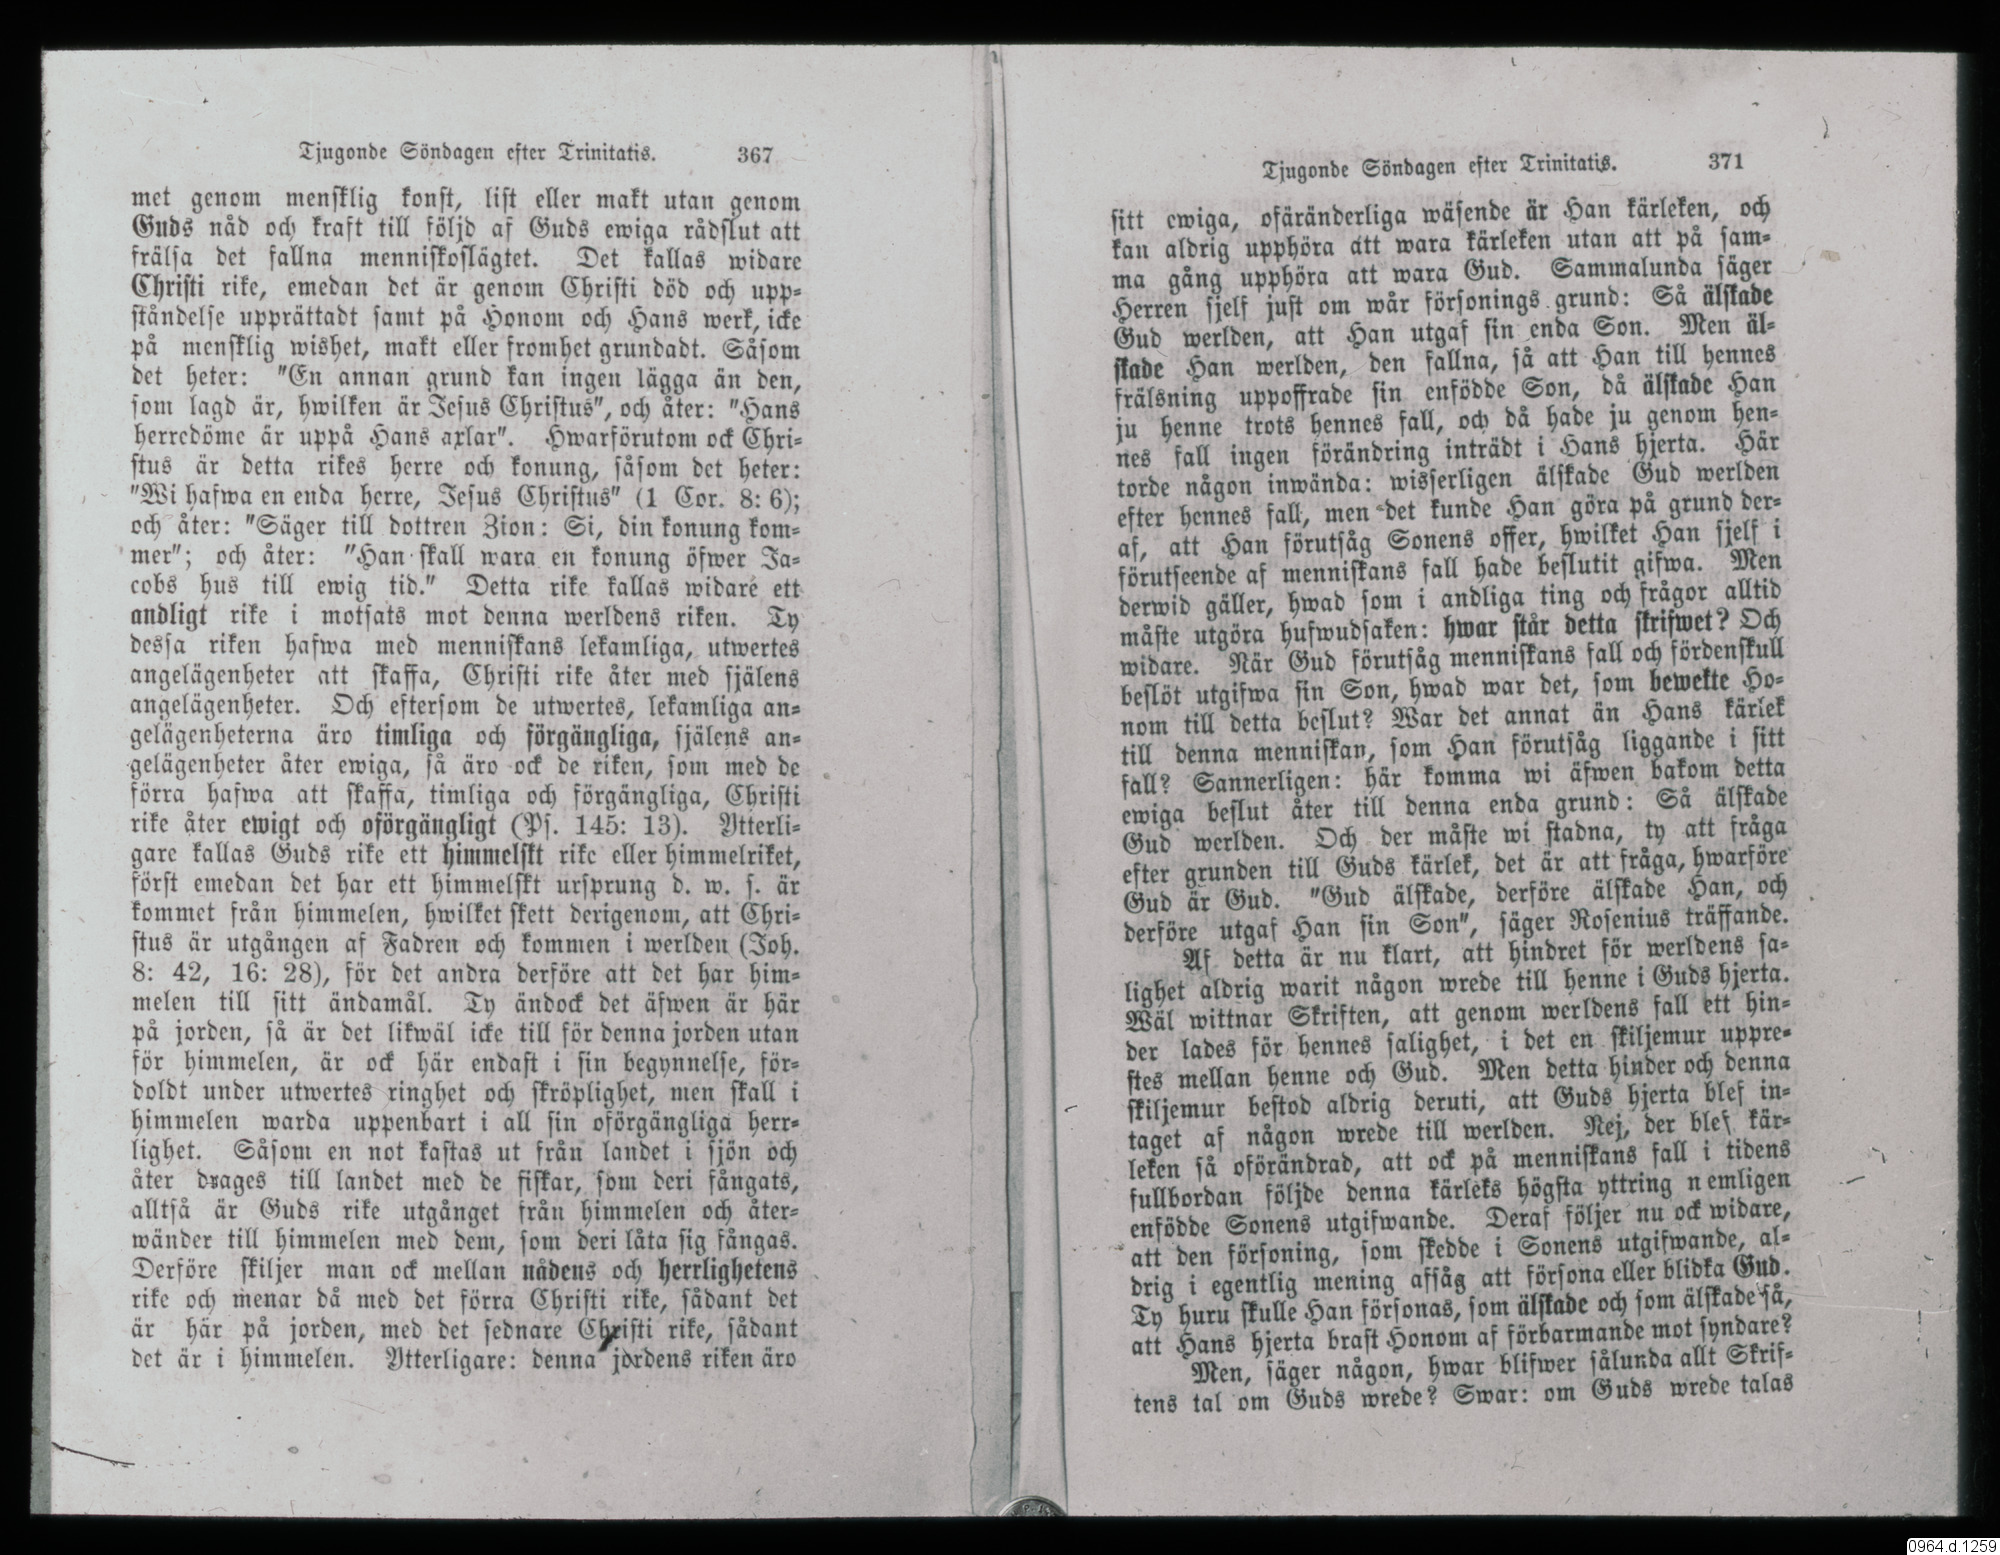 Tjugonde Söndagen efter Trinitatis. 367
met genom mensklig konst, list eller makt utan genom
Guds nåd och kraft till följd af Guds ewiga rådslut att
frälsa det fallna menniskoslägtet. Det kallas widare
Christi rike, emedan det är genom Christi död och upp-
ståndelse upprättadt samt på Honom och Hans werk, icke
på mensklig wishet, makt eller fromhet grundadt. Såsom
det heter: "En annan grund kan ingen lägga än den,
som lagd är, hwilken är Jesus Christus", och åter: "Hans
herredöme är uppå Hans axlar". Hwarförutom ock Chri-
stus är detta rikes herre och konung, såsom det heter:
"Wi hafwa en enda herre, Jesus Christus" (1 Cor. 8: 6);
och åter: "Säger till dottren Zion: Si, din konung kom-
mer"; och åter: "Han skall wara en konung öfwer Ja-
cobs hus till ewig tid." Detta rike kallas widare ett
andligt rike i motsats mot denna werldens riken. Ty
dessa riken hafwa med menniskans lekamliga, utwertes
angelägenheter att skaffa, Christi rike åter med själens
angelägenheter. Och eftersom de utwertes, lekamliga an-
gelägenheterna äro timliga och förgängliga, själens an-
gelägenheter åter ewiga, så äro ock de riken, som med de
förra hafwa att skaffa, timliga och förgängliga, Christi
rike åter ewigt och oförgängligt (Ps. 145: 13). Ytterli-
gare kallas Guds rike ett himmelskt rike eller himmelriket,
först emedan det har ett himmelskt ursprung d. w. s. är
kommet från himmelen, hwilket skett derigenom, att Chri-
stus är utgången af Fadren och kommen i werlden (Joh.
8: 42, 16: 28), för det andra derföre att det har him-
melen till sitt ändamål. Ty ändock det äfwen är här
på jorden, så är det likwäl icke till för denna jorden utan
för himmelen, är ock här endast i sin begynnelse, för-
doldt under utwertes ringhet och skröplighet, men skall i
himmelen warda uppenbart i all sin oförgängliga herr-
lighet. Såsom en not kastas ut från landet i sjön och
åter drages till landet med de fiskar, som deri fångats,
alltså är Guds rike utgånget från himmelen och åter-
wänder till himmelen med dem, som deri låta sig fångas.
Derföre skiljer man ock mellan nådens och herrlighetens
rike och menar då med det förra Christi rike, sådant det
är här på jorden, med det sednare Christi rike, sådant
det är i himmelen. Ytterligare: denna jordens riken äro
Tjugonde Söndagen efter Trinitatis. 371
sitt ewiga, oföränderliga wäsende är Han kärleken, och
kan aldrig upphöra att wara kärleken utan att på sam-
ma gång upphöra att wara Gud. Sammalunda säger
Herren sjelf just om wår försonings grund: Så älskade
Gud werlden, att Han utgaf sin enda Son. Men äl-
skade Han werlden, den fallna, så att Han till hennes
frälsning uppoffrade sin enfödde Son, då älskade Han
ju henne trots hennes fall, och då hade ju genom hen-
nes fall ingen förändring inträdt i Hans hjerta. Här
torde någon inwända: wisserligen älskade Gud werlden
efter hennes fall, men det kunde Han göra på grund der-
af, att Han förutsåg Sonens offer, hwilket Han sjelf i
förutseende af menniskans fall hade beslutit gifwa. Men
derwid gäller, hwad som i andliga ting och frågor alltid
måste utgöra hufwudsaken: hwar står detta skrifwet? Och
widare. När Gud förutsåg menniskans fall och fördenskull
beslöt utgifwa sin Son, hwad war det, som bewekte Ho-
nom till detta beslut? War det annat än Hans kärlek
till denna menniskan, som Han förutsåg liggande i sitt
fall? Sannerligen: här komma wi äfwen bakom detta
ewiga beslut åter till denna enda grund: Så älskade
Gud werlden. Och der måste wi stadna, ty att fråga
efter grunden till Guds kärlek, det är att fråga, hwarföre
Gud är Gud. "Gud älskade, derföre älskade Han, och
derföre utgaf Han sin Son", säger Rosenius träffande.
Af detta är nu klart, att hindret för werldens sa-
lighet aldrig warit någon wrede till henne i Guds hjerta.
Wäl wittnar Skriften, att genom werldens fall ett hin-
der lades för hennes salighet, i det en skiljemur uppre-
stes mellan henne och Gud. Men detta hinder och denna
skiljemur bestod aldrig deruti, att Guds hjerta blef in-
taget af någon wrede till werlden. Nej, der blef kär-
leken så oförändrad, att ock på menniskans fall i tidens
fullbordan följde denna kärleks högsta yttring nemligen
enfödde Sonens utgifwande. Deraf följer nu ock widare,
att den försoning, som skedde i Sonens utgifwande, al-
drig i egentlig mening afsåg att försona eller blidka Gud.
Ty huru skulle Han försonas, som älskade och som älskade så,
att Hans hjerta brast Honom af förbarmande mot syndare?
Men, säger någon, hwar blifwer sålunda allt Skrif-
tens tal om Guds wrede? Swar: om Guds wrede talas
0964.d.1259